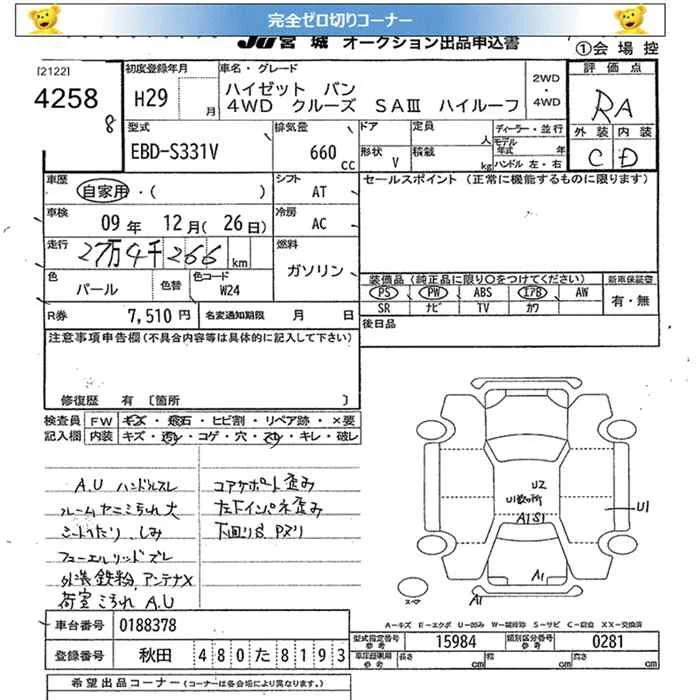 完全ゼロ切りコーナー
JU宮城 オークション出品申込書
①会場控
[2122]
4258
8
初度登録年月
H29
月
車名・グレード
ハイゼット バン
4WD クルーズ SAⅢ ハイルーフ
2WD
・
4WD
評価点
RA
外装 内装
C D
型式
EBD-S331V
排気量
660
cc
ドア
定員
人
形状
V
積載
kg
ディーラー・並行
モデル年式
年
ハンドル 左・右
車歴
自家用・( )
シフト
AT
セールスポイント (正常に機能するものに限ります)
車検
09 年 12 月( 26 日)
冷房
AC
走行
27万4千266 km
燃料
ガソリン
色
パール
色替
色コード
W24
装備品 (純正品に限り○をつけてください)
新車保証書
PS PW ABS エアB AW
SR ナビ TV カワ
有・無
R券
7,510 円
名変通知期限 月 日
後日品
注意事項申告欄(不具合内容等は具体的に記入して下さい)
修復歴 有 〔箇所 〕
検査員
記入欄
FW
キズ・飛石・ヒビ割・リペア跡・×要
内装
キズ・汚レ・コゲ・穴・スレ・キレ・破レ
A.U ハンドルスレ
フレームヤニこちれ大
シートへたり、しみ
フューエルリッドズレ
外装鉄粉、アンテナX
荷室こちれ A.U
コアサポート歪み
左下インパネ歪み
下回りS、Pヌリ
U2
U1数ヶ所
A1S1
U1
A1
A1
スペア
A-キズ E-エクボ U-凹み W-補修跡 S-サビ C-腐食 XX-交換済
車台番号
0188378
登録番号
秋田 480 た 8193
型式指定番号
参考
15984
類別区分番号
参考
0281
車庫証明用
参考
長さ
cm
幅
cm
高さ
cm
希望出品コーナー (コーナーは各会場により異なります。)